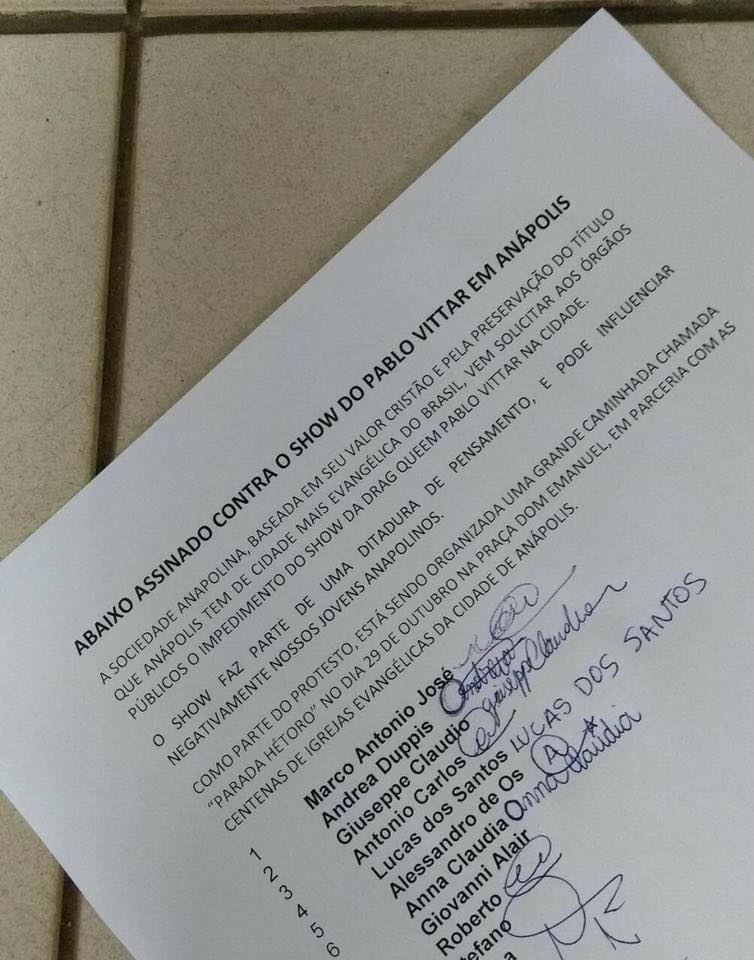 ABAIXO ASSINADO CONTRA O SHOW DO PABLO VITTAR EM ANÁPOLIS
A SOCIEDADE ANAPOLINA, BASEADA EM SEU VALOR CRISTÃO E PELA PRESERVAÇÃO DO TÍTULO
QUE ANÁPOLIS TEM DE CIDADE MAIS EVANGÉLICA DO BRASIL, VEM SOLICITAR AOS ÓRGÃOS
PÚBLICOS O IMPEDIMENTO DO SHOW DA DRAG QUEEM PABLO VITTAR NA CIDADE.
O SHOW FAZ PARTE DE UMA DITADURA DE PENSAMENTO, E PODE INFLUENCIAR
NEGATIVAMENTE NOSSOS JOVENS ANAPOLINOS.
COMO PARTE DO PROTESTO, ESTÁ SENDO ORGANIZADA UMA GRANDE CAMINHADA CHAMADA
"PARADA HÉTORO" NO DIA 29 DE OUTUBRO NA PRAÇA DOM EMANUEL, EM PARCERIA COM AS
CENTENAS DE IGREJAS EVANGÉLICAS DA CIDADE DE ANÁPOLIS.
1 Marco Antonio José
2 Andrea Duppis
3 Giuseppe Claudio Giuseppe Claudio
4 Antonio Carlos
5 Lucas dos Santos LUCAS DOS SANTOS
6 Alessandro de Os A
Anna Claudia Anna Claúdia
Giovanni Alair
Roberto
tefano
a